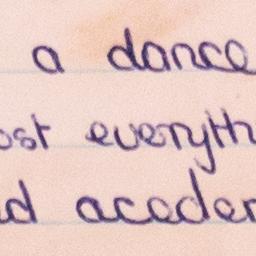 a dance
ost everyth
d academ